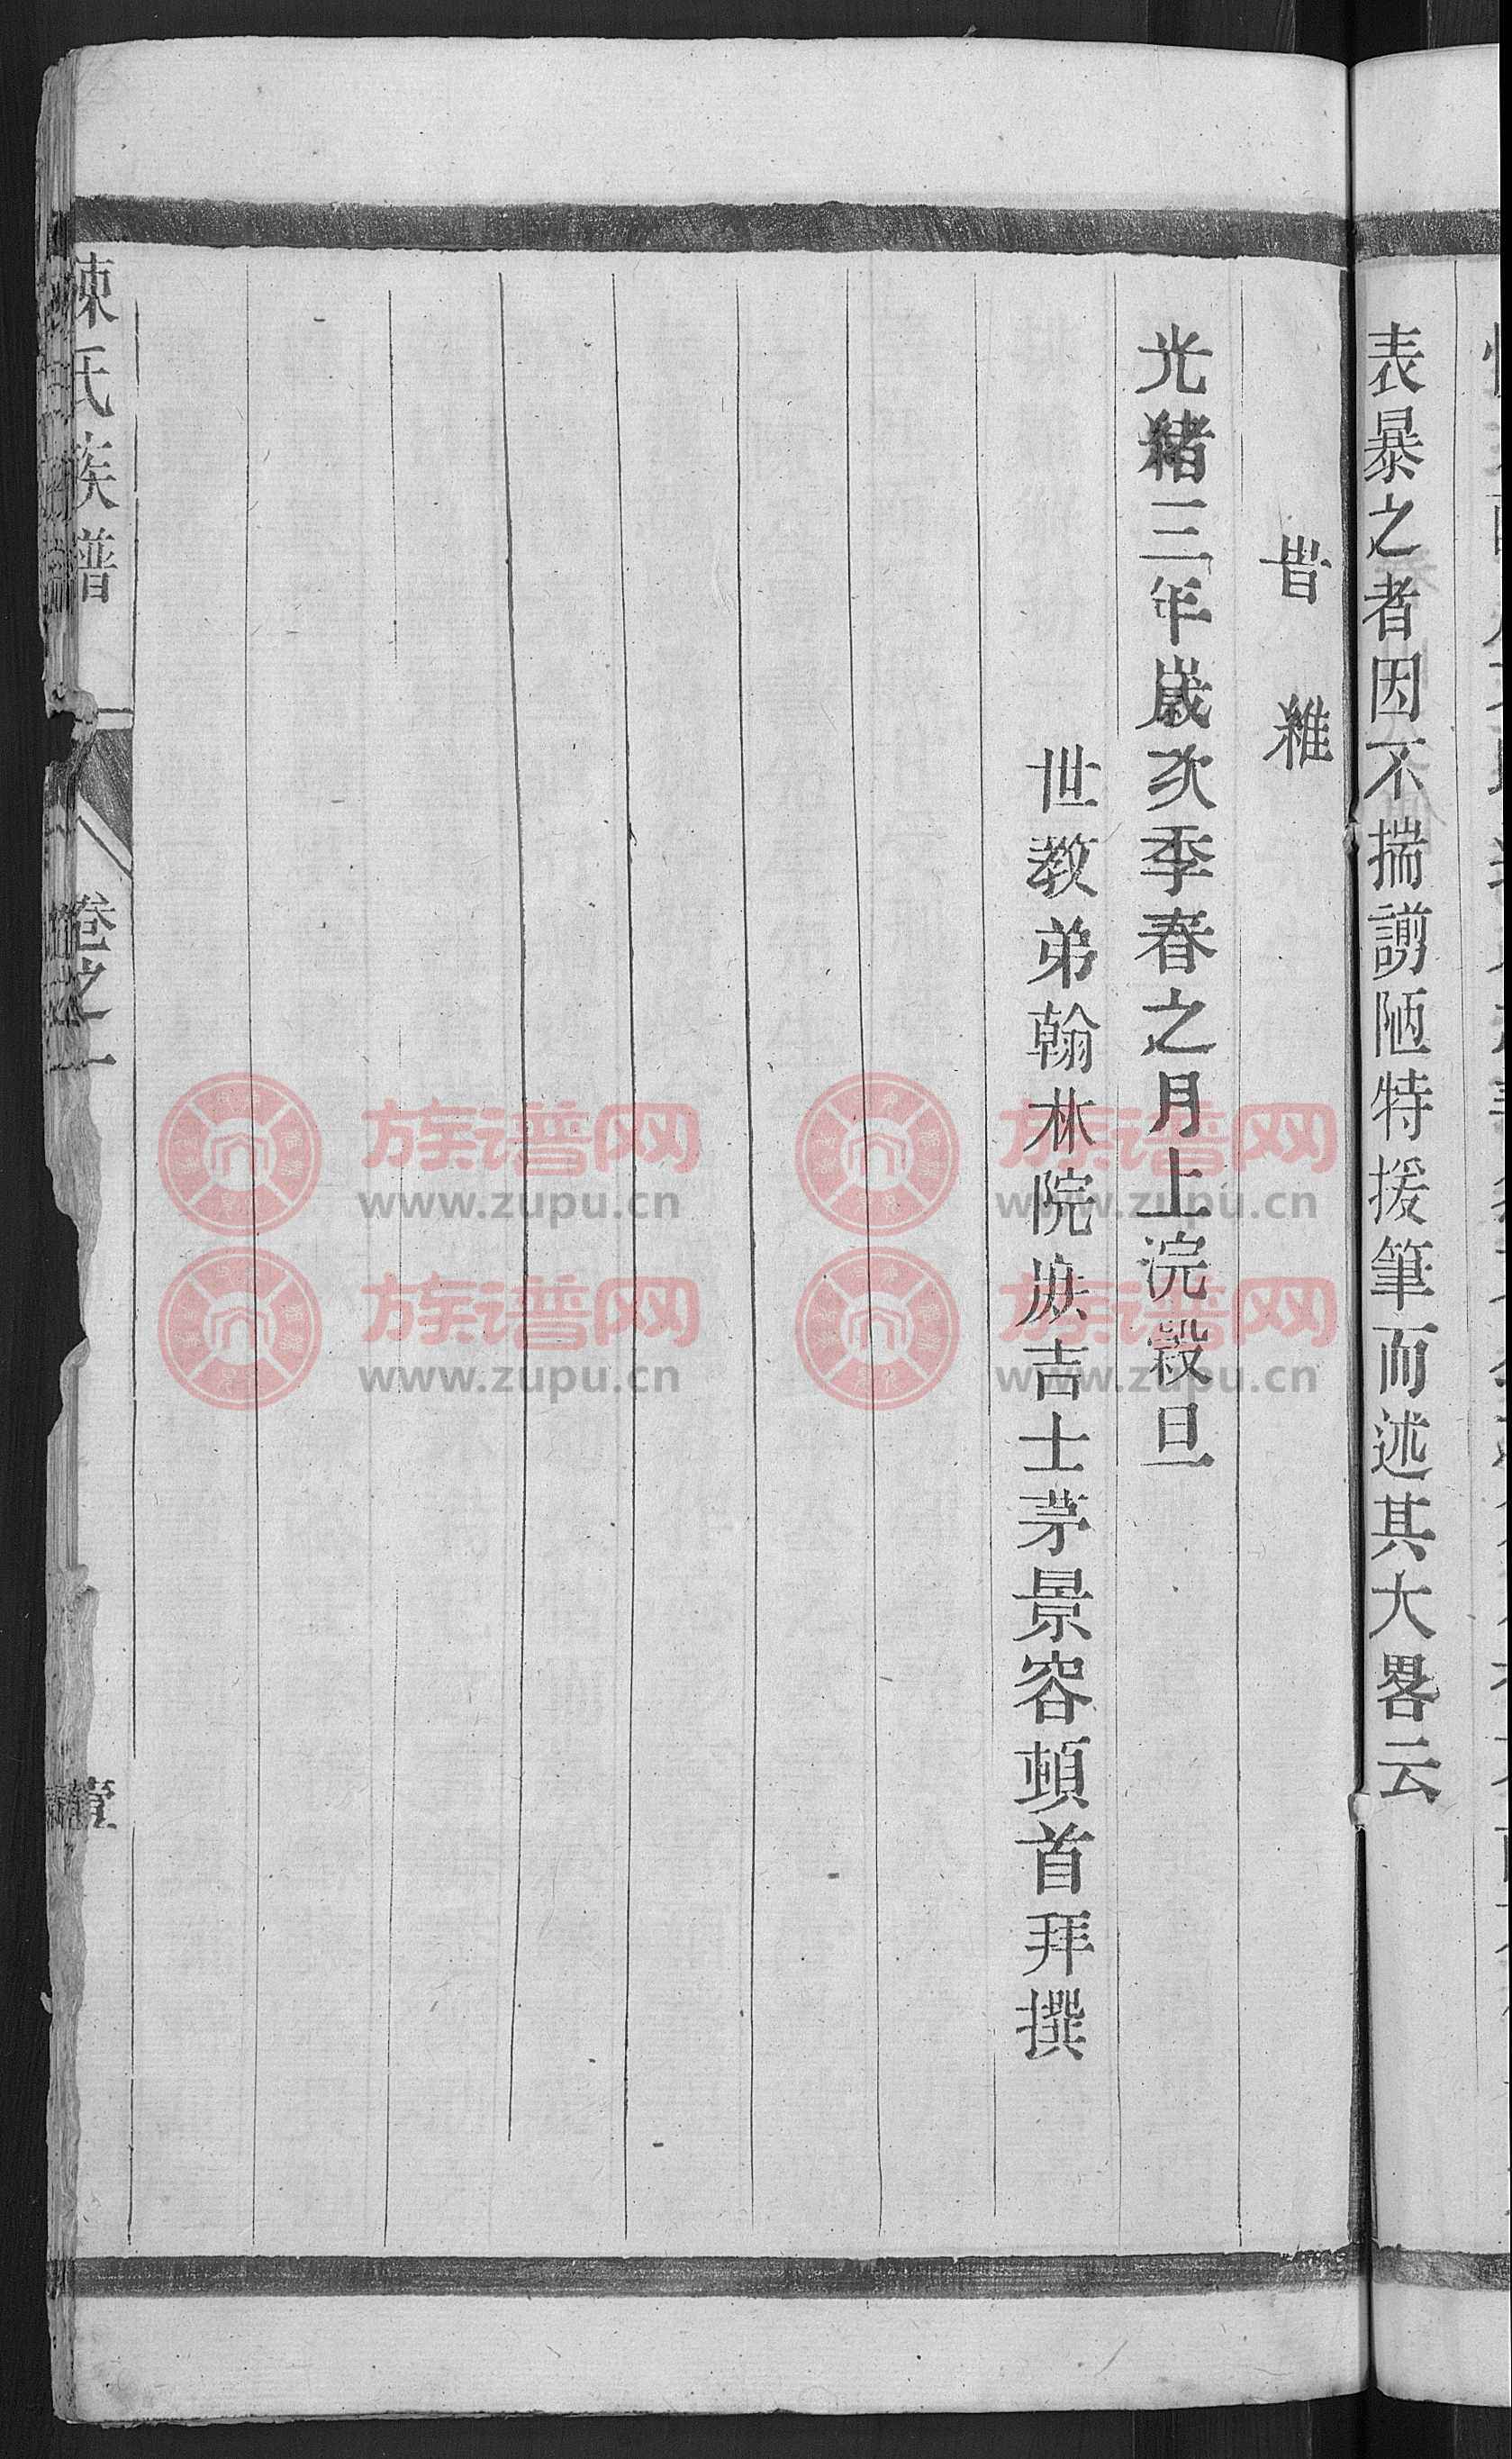 表暴之者因不揣謭陋特援筆而述其大畧云
時維
光緒三年歲次季春之月上浣穀旦
世教弟翰林院庶吉士茅景容頓首拜撰
陳氏族譜
卷之一
壹
族谱网
www.zupu.cn
族谱网
www.zupu.cn
族谱网
www.zupu.cn
族谱网
www.zupu.cn